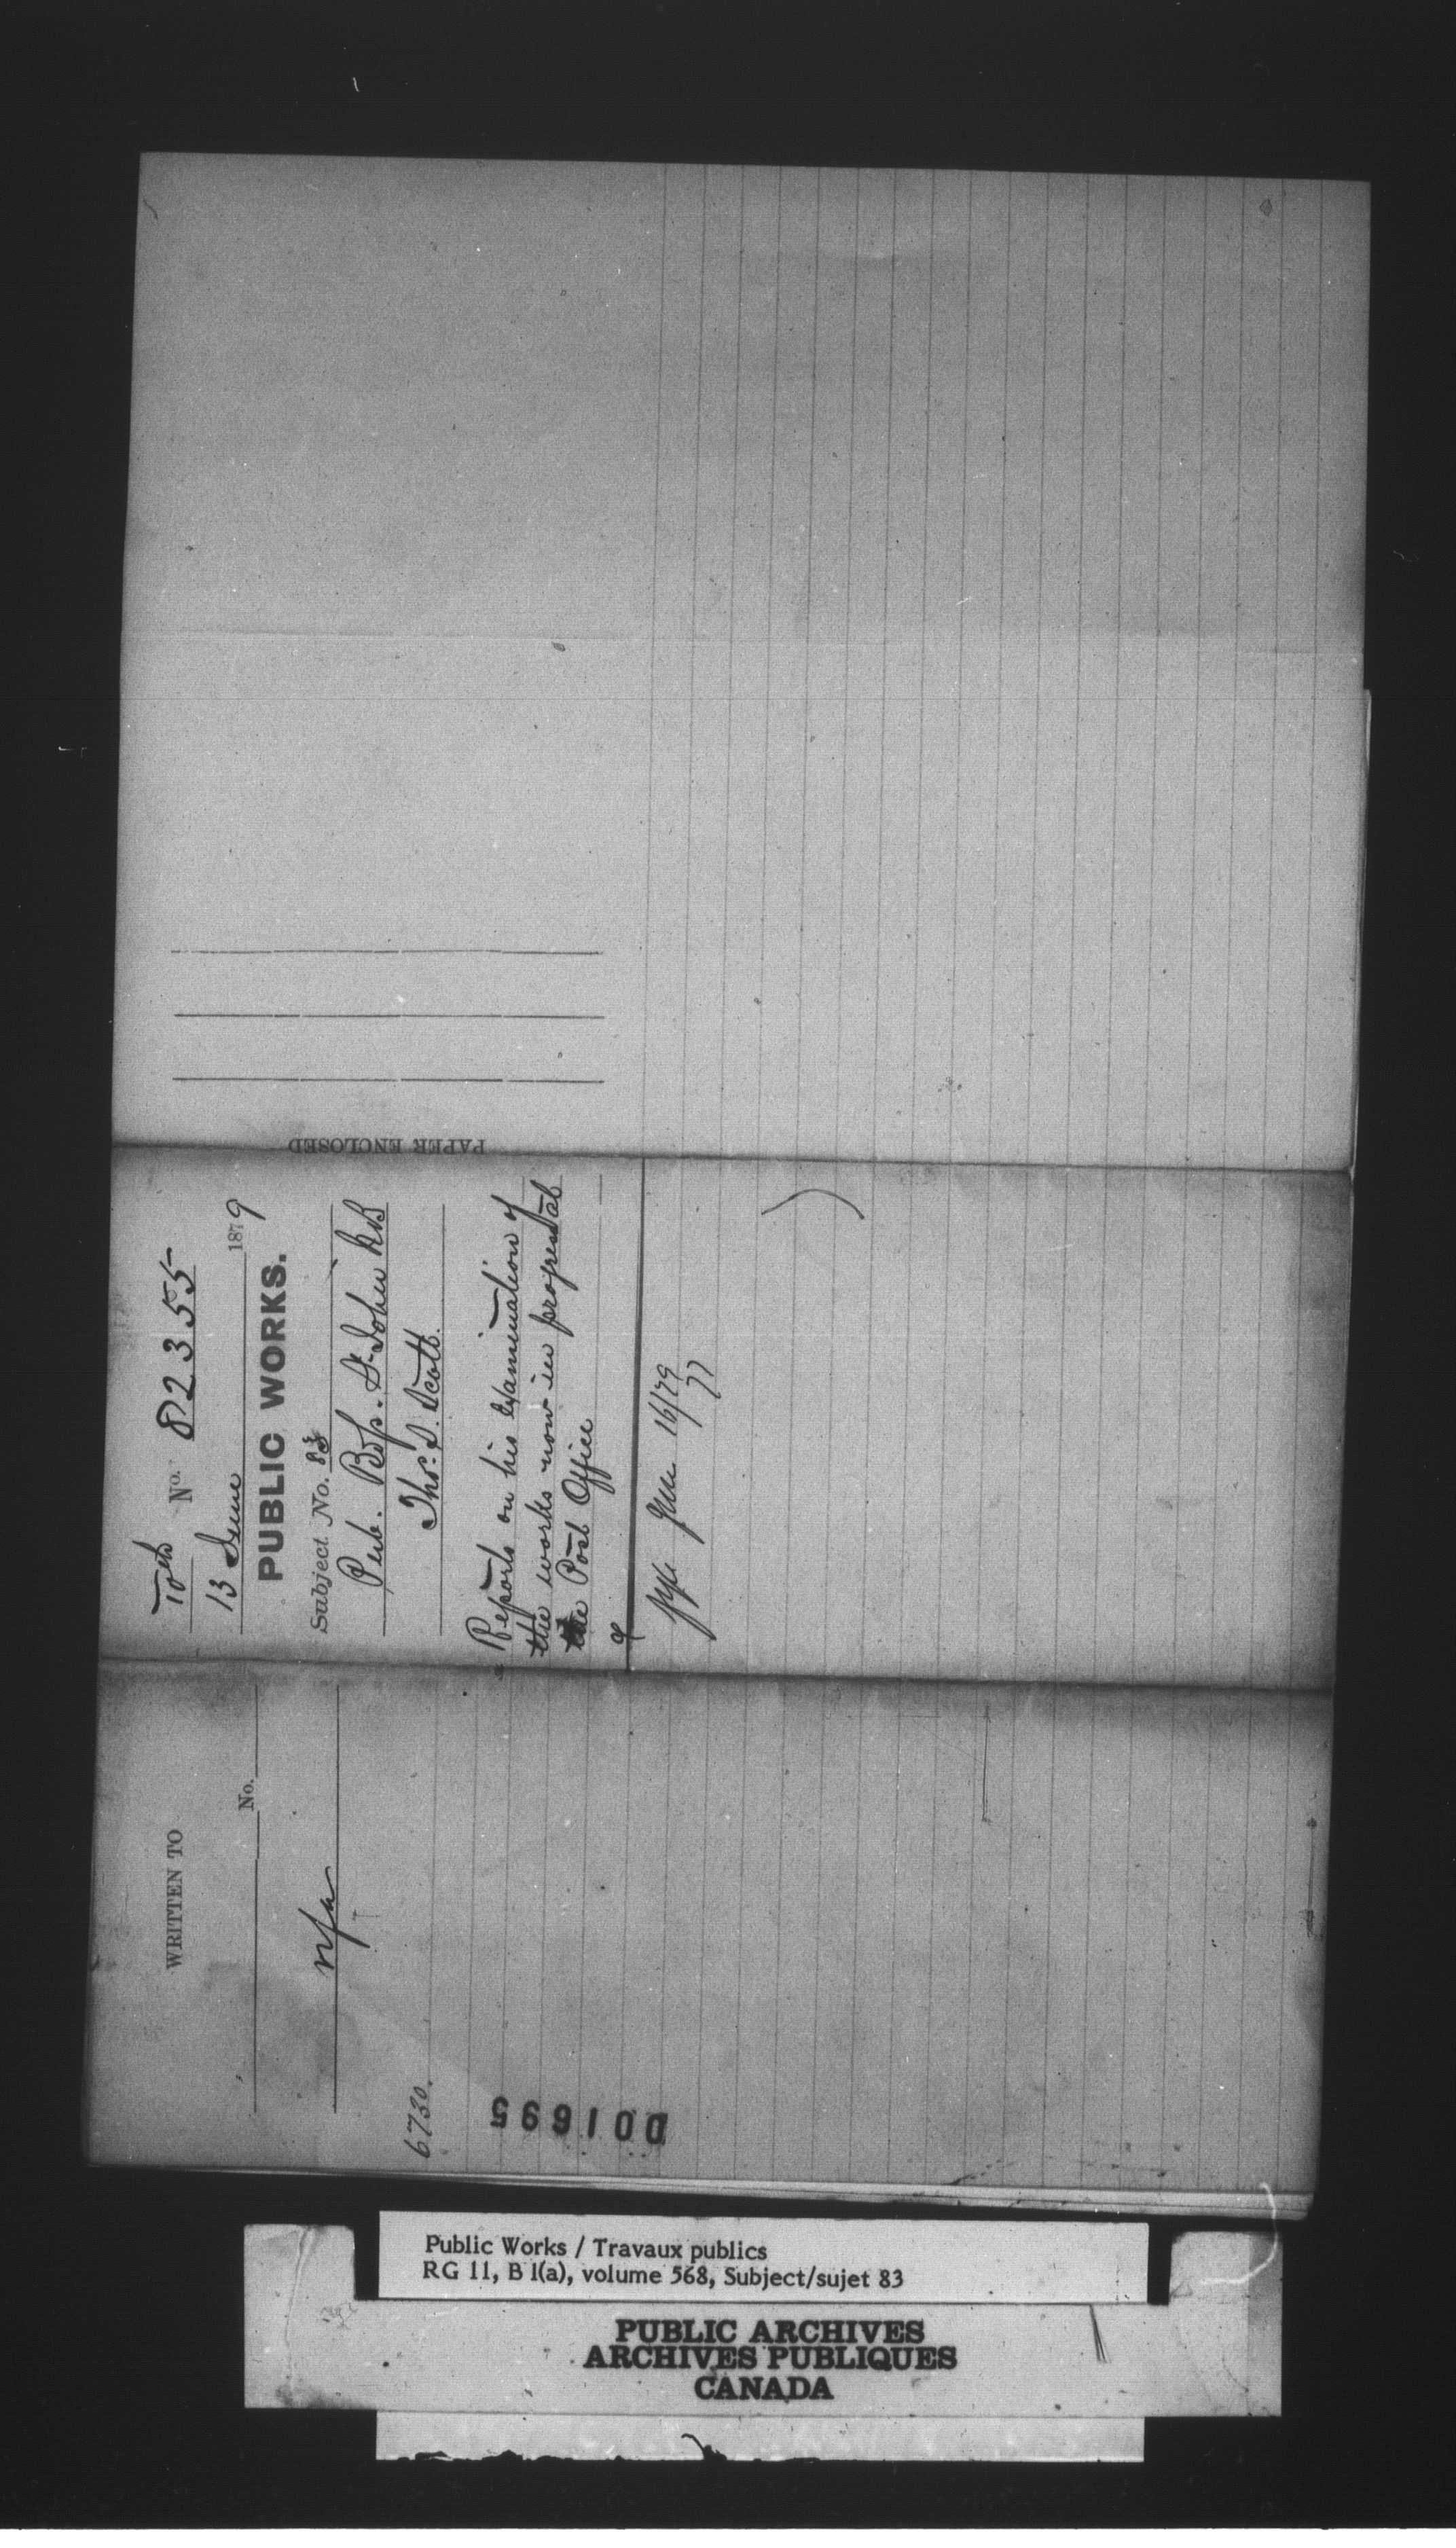 10th No. 82355
13 June 1879
PUBLIC WORKS.
Subject No. 83
Pub. Bdgs. St. John NB
Thos. S. Scott.
Reports on his examination of
the works now in progress at
the Post Office
16/79
77
PAPER ENCLOSED
WRITTEN TO
No.
nfa
6730.
001695
Public Works / Travaux publics
RG 11, B 1(a), volume 568, Subject/sujet 83
PUBLIC ARCHIVES
ARCHIVES PUBLIQUES
CANADA